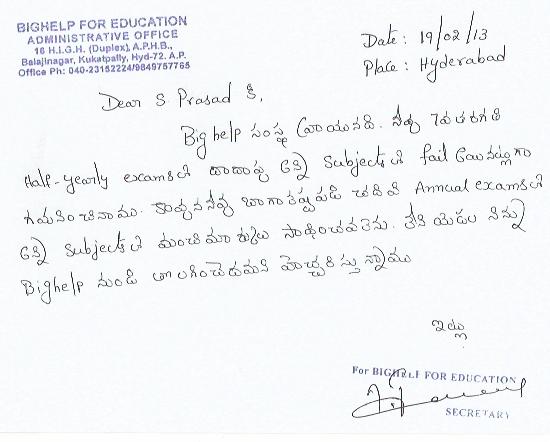 BIGHELP FOR EDUCATION
ADMINISTRATIVE OFFICE
16 H.I.G.H. (Duplex), A.P.H.B.,
Balajinagar, Kukatpally, Hyd-72. A.P.
Office Ph: 040-23152224/9849757765
Date: 19/02/13
Place: Hyderabad
Dear S. Prasad కి,
Bighelp సంస్థ వ్రాయునది. నీవు 7వ తరగతి
Half-yearly exams లో దాదాపు 6 Subjects లో fail అయినట్లుగా
గమనించినాము. కావున నీవు బాగా కష్టపడి చదివి Annual exams లో
6 Subjects లో మంచి మార్కులు సాధించవలెను. లేని యెడల నిన్ను
Bighelp నుండి తొలగించెదమని హెచ్చరిస్తున్నాము
ఇట్లు
For BIGHELP FOR EDUCATION
SECRETARY